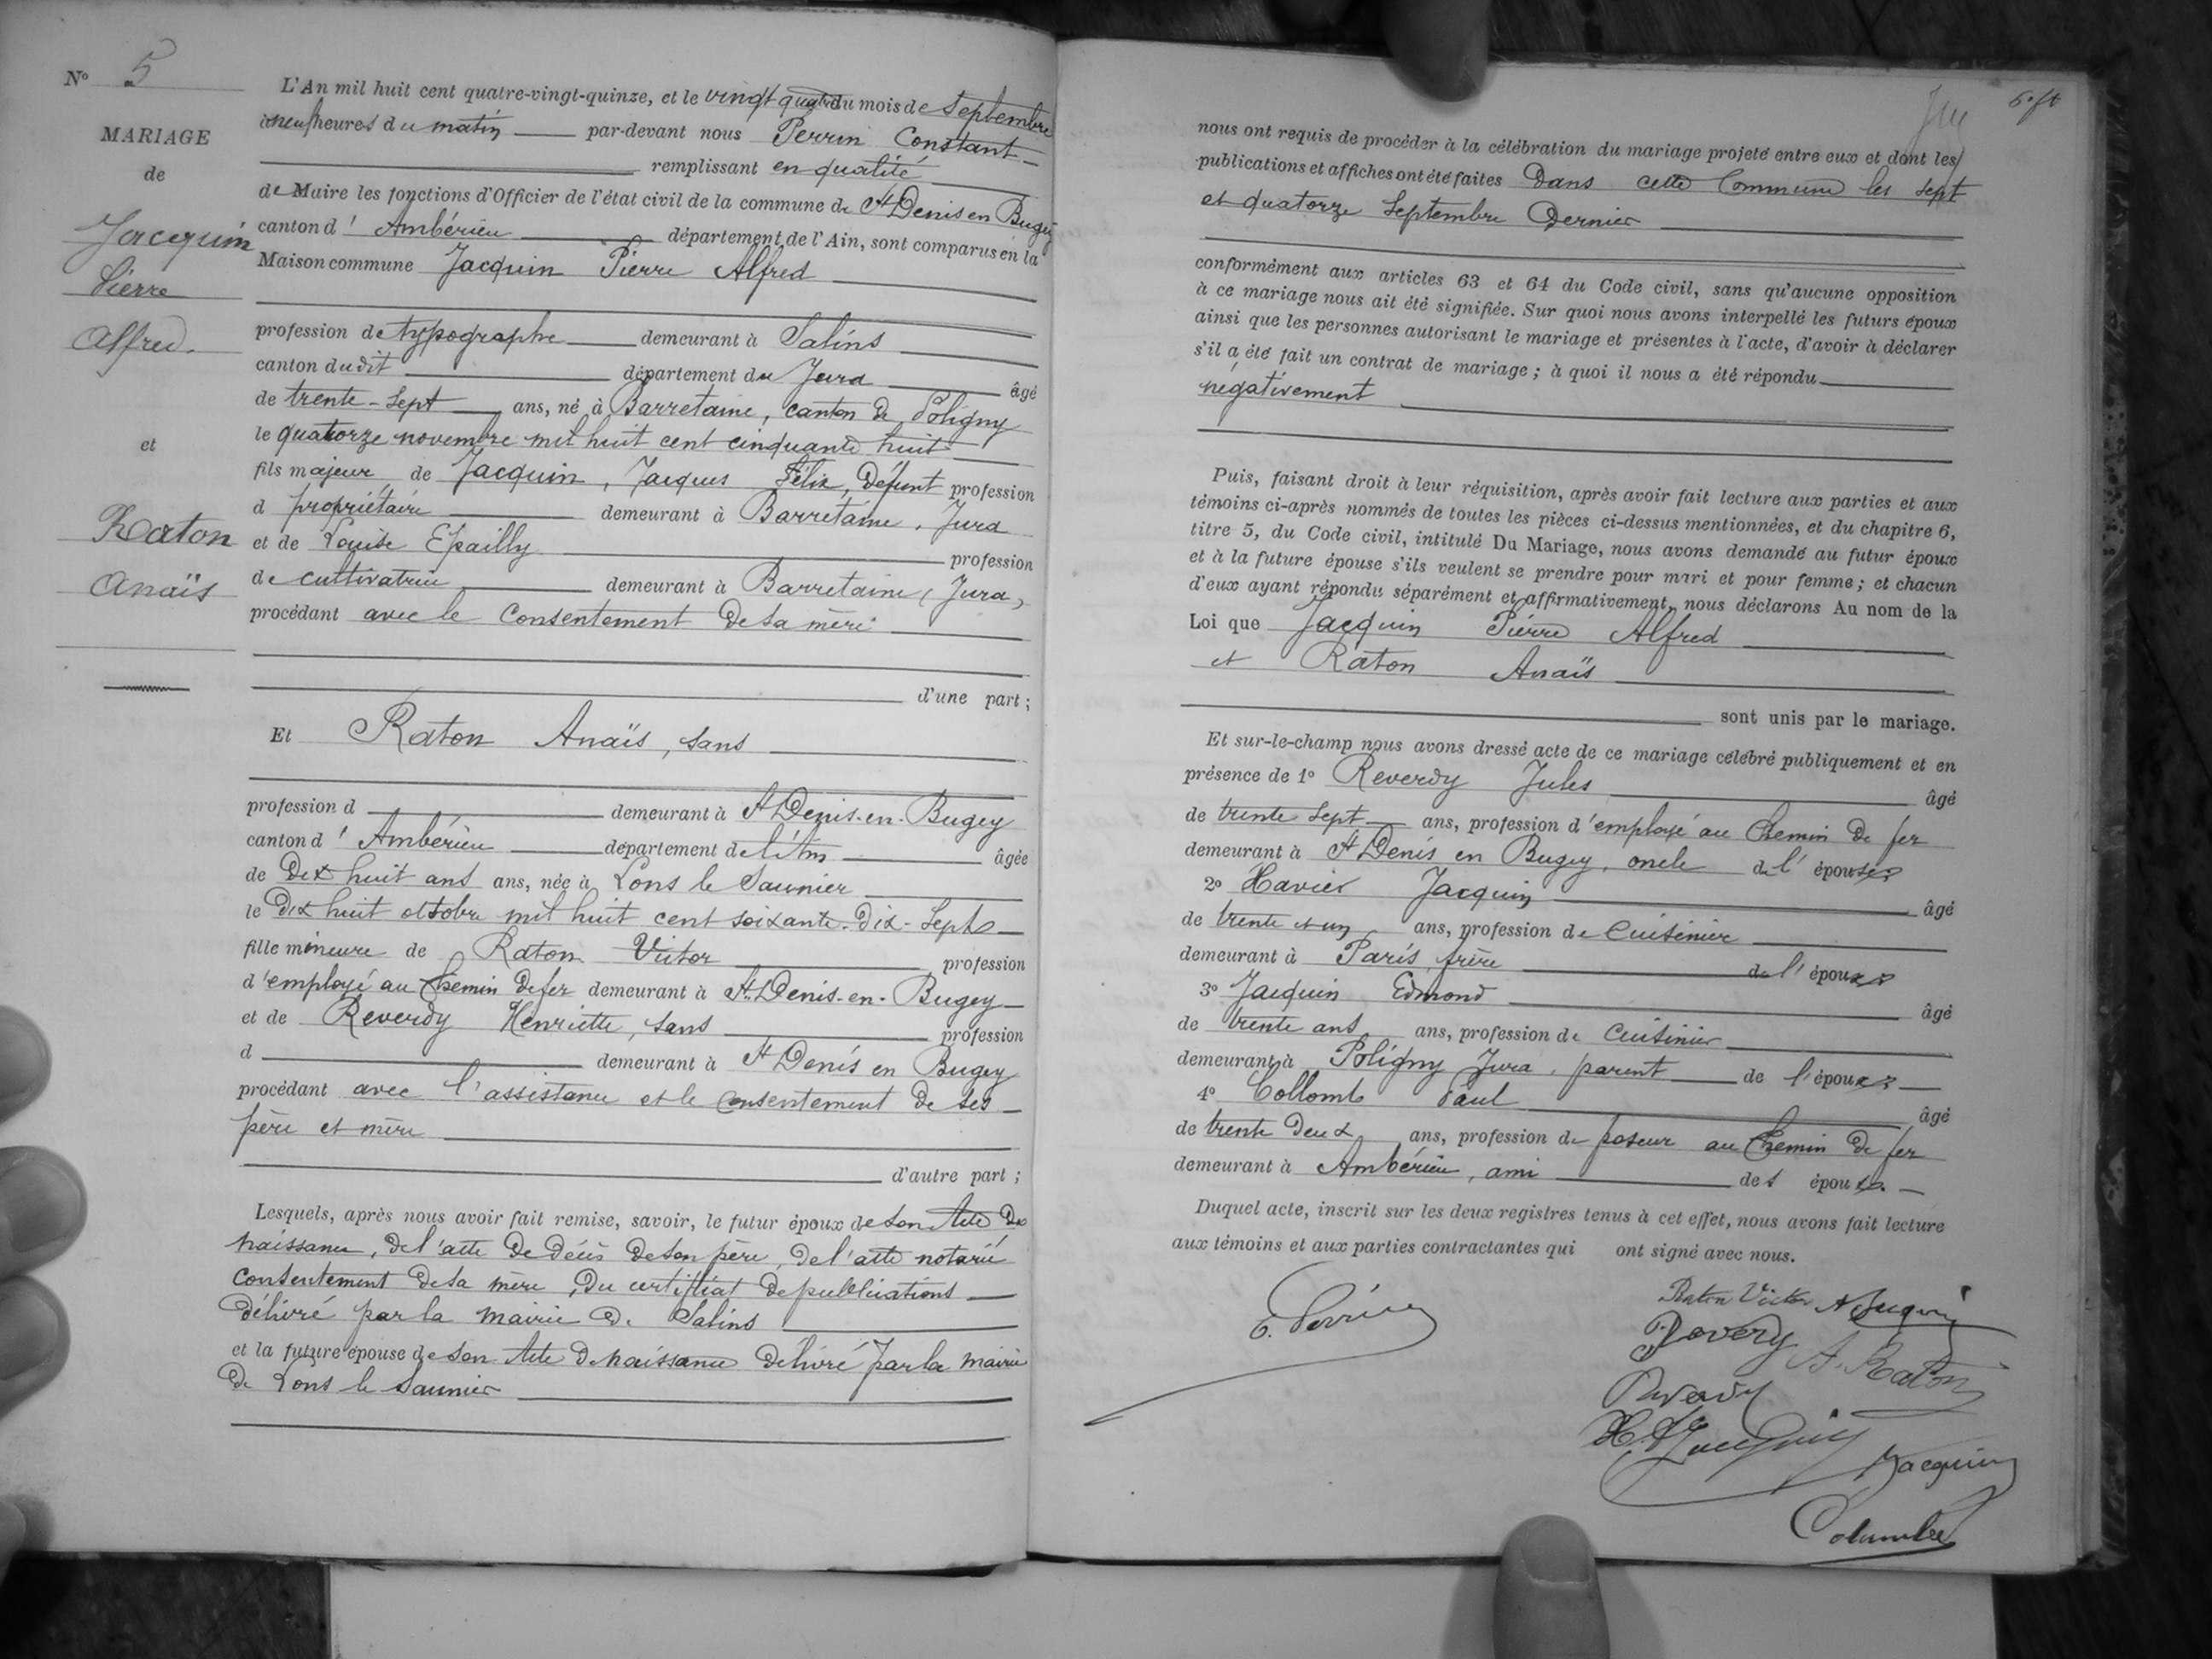 N° 5
MARIAGE
de
Jacquin
Pierre
Alfred.
et
Raton
Anaïs
L'An mil huit cent quatre-vingt-quinze, et le vingt quatre du mois de Septembre
à neuf heures du matin par-devant nous Perrin Constant
remplissant en qualité
de Maire les fonctions d'Officier de l'état civil de la commune de St Denis en Bugey
canton d' Ambérieu département de l'Ain, sont comparus en la
Maison commune Jacquin Pierre Alfred
profession de typographe demeurant à Salins
canton dudit département du Jura âgé
de trente-sept ans, né à Barretaine, canton de Poligny
le quatorze novembre mil huit cent cinquante huit
fils majeur de Jacquin, Jacques Félix, Défunt profession
d propriétaire demeurant à Barretaine, Jura
et de Louise Epailly profession
de cultivatrice demeurant à Barretaine, (Jura)
procédant avec le Consentement de sa mère
d'une part;
Et Raton Anaïs, sans
profession d demeurant à St Denis-en-Bugey
canton d' Ambérieu département de l'Ain âgée
de Dix huit ans ans, née à Lons le Saunier
le Dix huit octobre mil huit cent soixante-Dix-Sept
fille mineure de Raton Victor profession
d'employé au Chemin de fer demeurant à St Denis-en-Bugey
et de Reverdy Henriette, sans profession
d demeurant à St Denis en Bugey
procédant avec l'assistance et le consentement de ses
père et mère
d'autre part;
Lesquels, après nous avoir fait remise, savoir, le futur époux de son Acte de
naissance, de l'acte de décès de son père, de l'acte notarié
consentement de sa mère, Du certificat de publications
délivré par la mairie de Salins
et la future épouse de son Acte de naissance délivré par la mairie
de Lons le Saunier
nous ont requis de procéder à la célébration du mariage projeté entre eux et dont les
publications et affiches ont été faites Dans cette Commune les sept
et quatorze Septembre Dernier
conformément aux articles 63 et 64 du Code civil, sans qu'aucune opposition
à ce mariage nous ait été signifiée. Sur quoi nous avons interpellé les futurs époux
ainsi que les personnes autorisant le mariage et présentes à l'acte, d'avoir à déclarer
s'il a été fait un contrat de mariage; à quoi il nous a été répondu
négativement
Puis, faisant droit à leur réquisition, après avoir fait lecture aux parties et aux
témoins ci-après nommés de toutes les pièces ci-dessus mentionnées, et du chapitre 6,
titre 5, du Code civil, intitulé Du Mariage, nous avons demandé au futur époux
et à la future épouse s'ils veulent se prendre pour mari et pour femme; et chacun
d'eux ayant répondu séparément et affirmativement, nous déclarons Au nom de la
Loi que Jacquin Pierre Alfred
et Raton Anaïs
sont unis par le mariage.
Et sur-le-champ nous avons dressé acte de ce mariage célébré publiquement et en
présence de 1° Reverdy Jules âgé
de trente sept ans, profession d'employé au Chemin de fer
demeurant à St Denis en Bugey, oncle de l' épouse
2° Xavier Jacquin âgé
de trente et un ans, profession de Cuisinier
demeurant à Paris, frère de l' époux
3° Jacquin Edmond âgé
de trente ans ans, profession de Cuisinier
demeurant à Poligny Jura, parent de l'époux
4° Collomb Paul âgé
de trente Deux ans, profession de poseur au Chemin de fer
demeurant à Ambérieu, ami des époux
Duquel acte, inscrit sur les deux registres tenus à cet effet, nous avons fait lecture
aux témoins et aux parties contractantes qui ont signé avec nous.
Raton Victor A Jacquin
C. Perrin
Reverdy
A. Raton
Reverdy
X. Jacquin
Jacquin